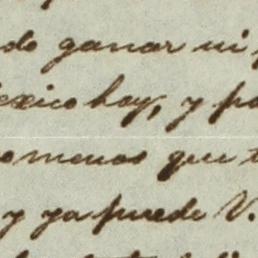 do ganar ni
exico hoy, y
omenos que
y ya puede V.